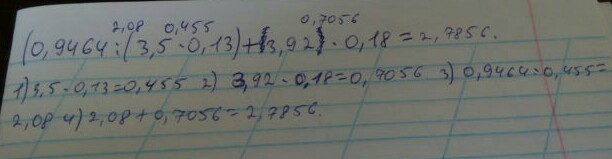 2,08 0,455 0,7056
(0,9464:(3,5·0,13)+(3,92)·0,18=2,7856.
1)3,5·0,13=0,455 2) 3,92·0,18=0,7056 3) 0,9464:0,455=
2,08 4) 2,08+0,7056=2,7856.